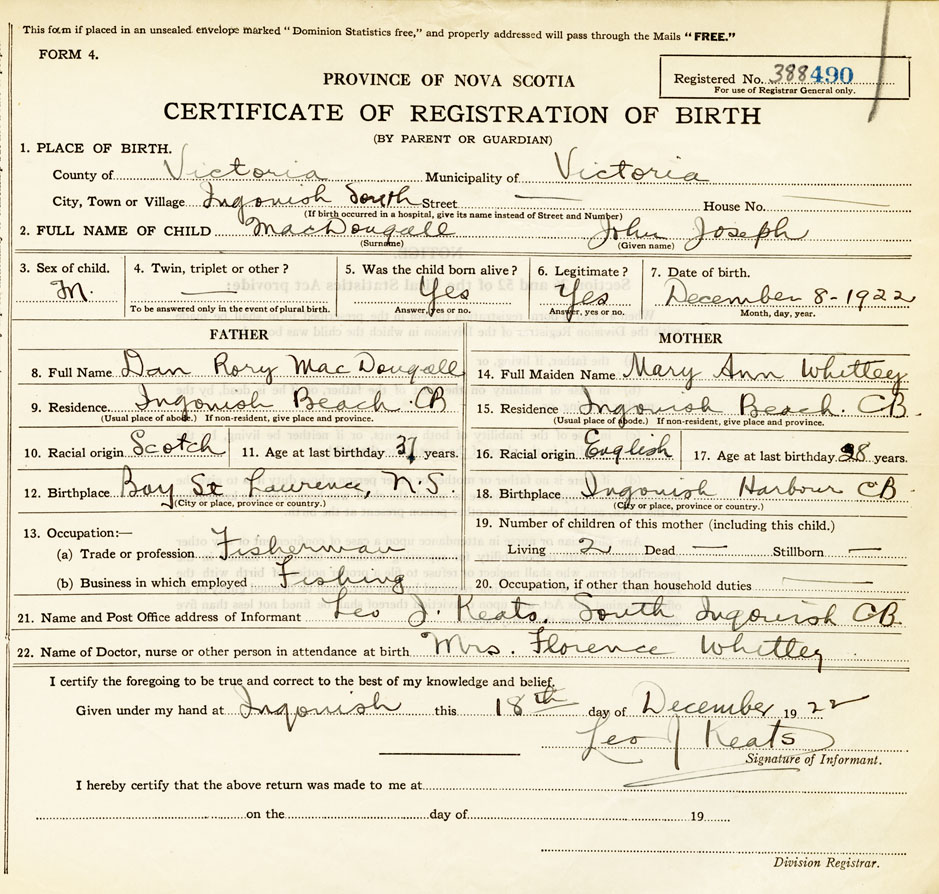 This form if placed in an unsealed envelope marked "Dominion Statistics free," and properly addressed will pass through the Mails "FREE."
FORM 4.
Registered No. 388490
For use of Registrar General only.
PROVINCE OF NOVA SCOTIA
CERTIFICATE OF REGISTRATION OF BIRTH
(BY PARENT OR GUARDIAN)
1. PLACE OF BIRTH.
County of Victoria Municipality of Victoria
City, Town or Village Ingonish South Street — House No. —
(If birth occurred in a hospital, give its name instead of Street and Number)
2. FULL NAME OF CHILD MacDougall John Joseph
(Surname) (Given name)
3. Sex of child. 4. Twin, triplet or other? 5. Was the child born alive? 6. Legitimate? 7. Date of birth.
M. — Yes Yes December 8-1922
To be answered only in the event of plural birth. Answer, yes or no. Answer, yes or no. Month, day, year.
FATHER MOTHER
8. Full Name Dan Rory MacDougall 14. Full Maiden Name Mary Ann Whittey
9. Residence. Ingonish Beach CB 15. Residence Ingonish Beach. CB.
(Usual place of abode.) If non-resident, give place and province. (Usual place of abode.) If non-resident, give place and province.
10. Racial origin Scotch 11. Age at last birthday 37 years. 16. Racial origin English 17. Age at last birthday 28 years.
12. Birthplace Bay St Laurence, N.S. 18. Birthplace Ingonish Harbour CB
(City or place, province or country.) (City or place, province or country.)
13. Occupation:— 19. Number of children of this mother (including this child.)
(a) Trade or profession Fisherman Living 2 Dead — Stillborn —
(b) Business in which employed Fishing 20. Occupation, if other than household duties —
21. Name and Post Office address of Informant Leo J. Keats. South Ingonish CB.
22. Name of Doctor, nurse or other person in attendance at birth Mrs. Florence Whittey
I certify the foregoing to be true and correct to the best of my knowledge and belief.
Given under my hand at Ingonish this 18th day of December 1922
Leo J Keats
Signature of Informant.
I hereby certify that the above return was made to me at
on the day of 19
Division Registrar.